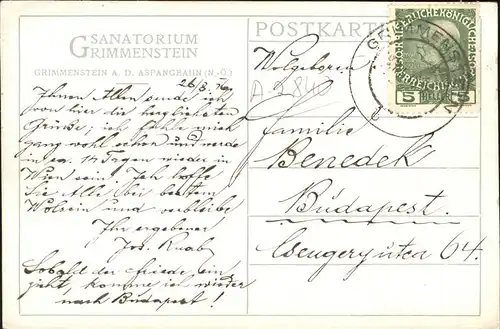 SANATORIUM
GRIMMENSTEIN
GRIMMENSTEIN A. D. ASPANGBAHN (N.-Ö.)
POSTKARTE
26/3.
Ihnen Allen sende ich
von hier die herzlichsten
Grüße; ich fühle mich
ganz wohl schon und werde
in ca. 14 Tagen wieder in
Wien sein. Ich hoffe
Sie Alle bei bestem
Wolsein und verbleibe
Ihr ergebener
Jos. Raab
Sobald der Friede ein-
zieht, komme ich wieder
nach Budapest!
Wolgeboren
Familie
Benedek
Budapest.
Csengery utca 64.
GRIMMENSTEIN
5 5